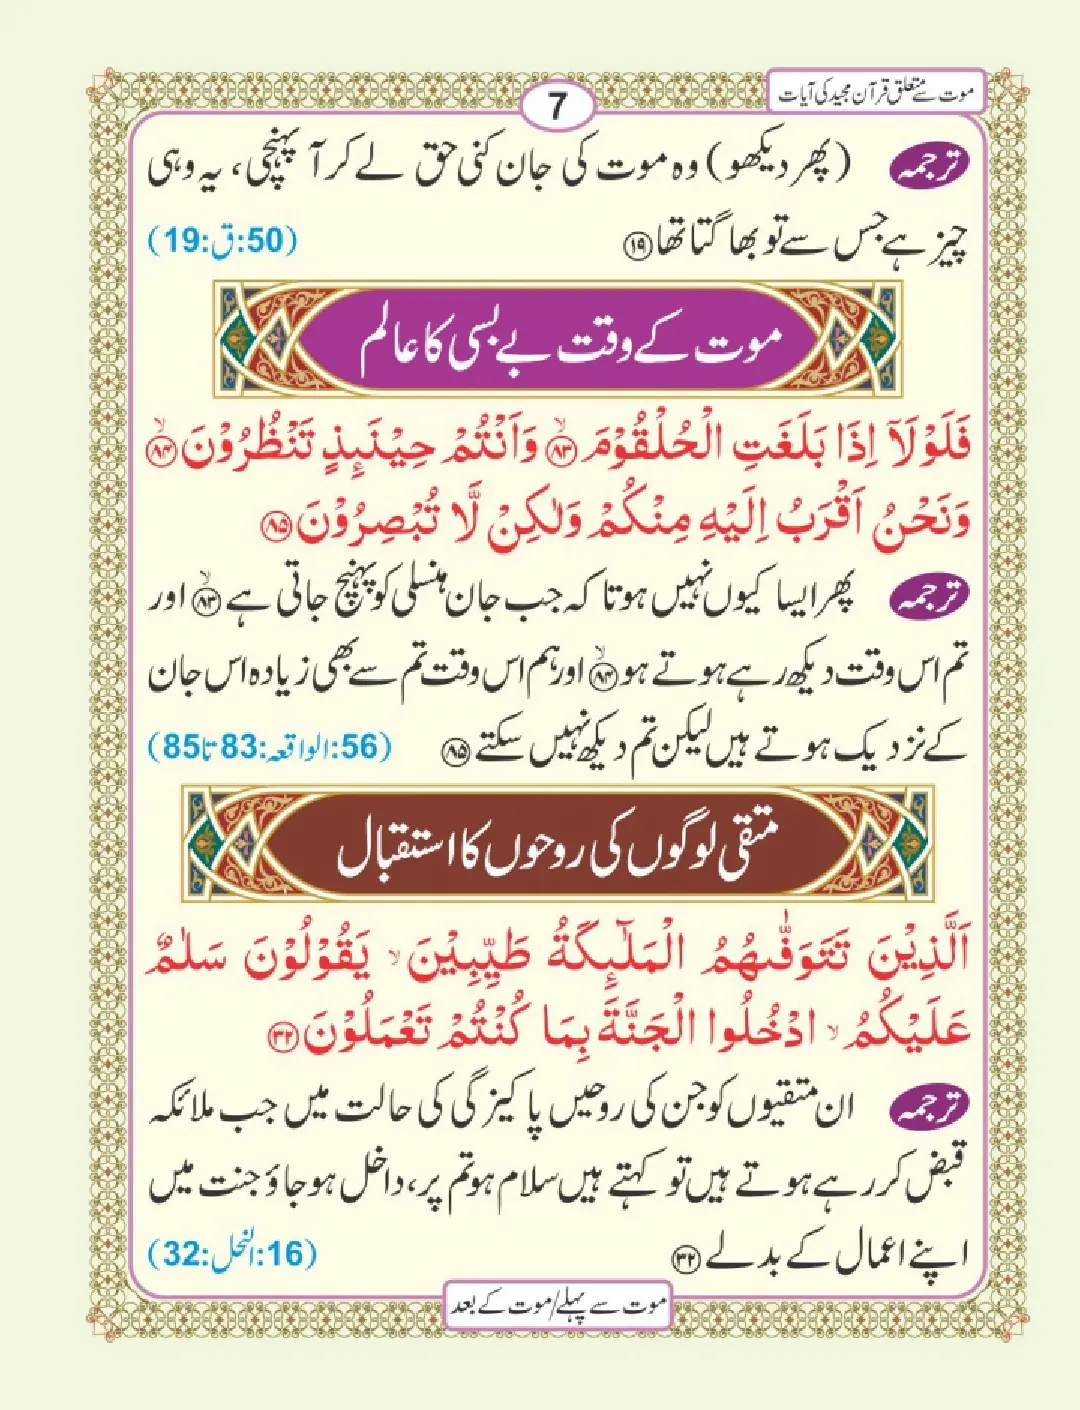 موت سے متعلق قرآن مجید کی آیات
7
ترجمہ (پھر دیکھو) وہ موت کی جان کنی حق لے کر آ پہنچی، یہ وہی
چیز ہے جس سے تو بھاگتا تھا ⑲ (50:ق:19)
موت کے وقت بے بسی کا عالم
فَلَوْلَآ اِذَا بَلَغَتِ الْحُلْقُوْمَ ۙ۸۳ وَاَنْتُمْ حِيْنَىِٕذٍ تَنْظُرُوْنَ ۙ۸۴
وَنَحْنُ اَقْرَبُ اِلَيْهِ مِنْكُمْ وَلٰكِنْ لَّا تُبْصِرُوْنَ ۸۵
ترجمہ پھر ایسا کیوں نہیں ہوتا کہ جب جان ہنسلی کو پہنچ جاتی ہے ۙ۸۳ اور
تم اس وقت دیکھ رہے ہوتے ہو ۙ۸۴ اور ہم اس وقت تم سے بھی زیادہ اس جان
کے نزدیک ہوتے ہیں لیکن تم دیکھ نہیں سکتے ۸۵ (56:الواقعہ:83 تا 85)
متقی لوگوں کی روحوں کا استقبال
اَلَّذِيْنَ تَتَوَفّٰىهُمُ الْمَلٰٓىِٕكَةُ طَيِّبِيْنَ ۙ يَقُوْلُوْنَ سَلٰمٌ
عَلَيْكُمُ ۙ ادْخُلُوا الْجَنَّةَ بِمَا كُنْتُمْ تَعْمَلُوْنَ ۳۲
ترجمہ ان متقیوں کو جن کی روحیں پاکیزگی کی حالت میں جب ملائکہ
قبض کر رہے ہوتے ہیں تو کہتے ہیں سلام ہو تم پر، داخل ہو جاؤ جنت میں
اپنے اعمال کے بدلے ۳۲ (16:النحل:32)
موت سے پہلے/موت کے بعد